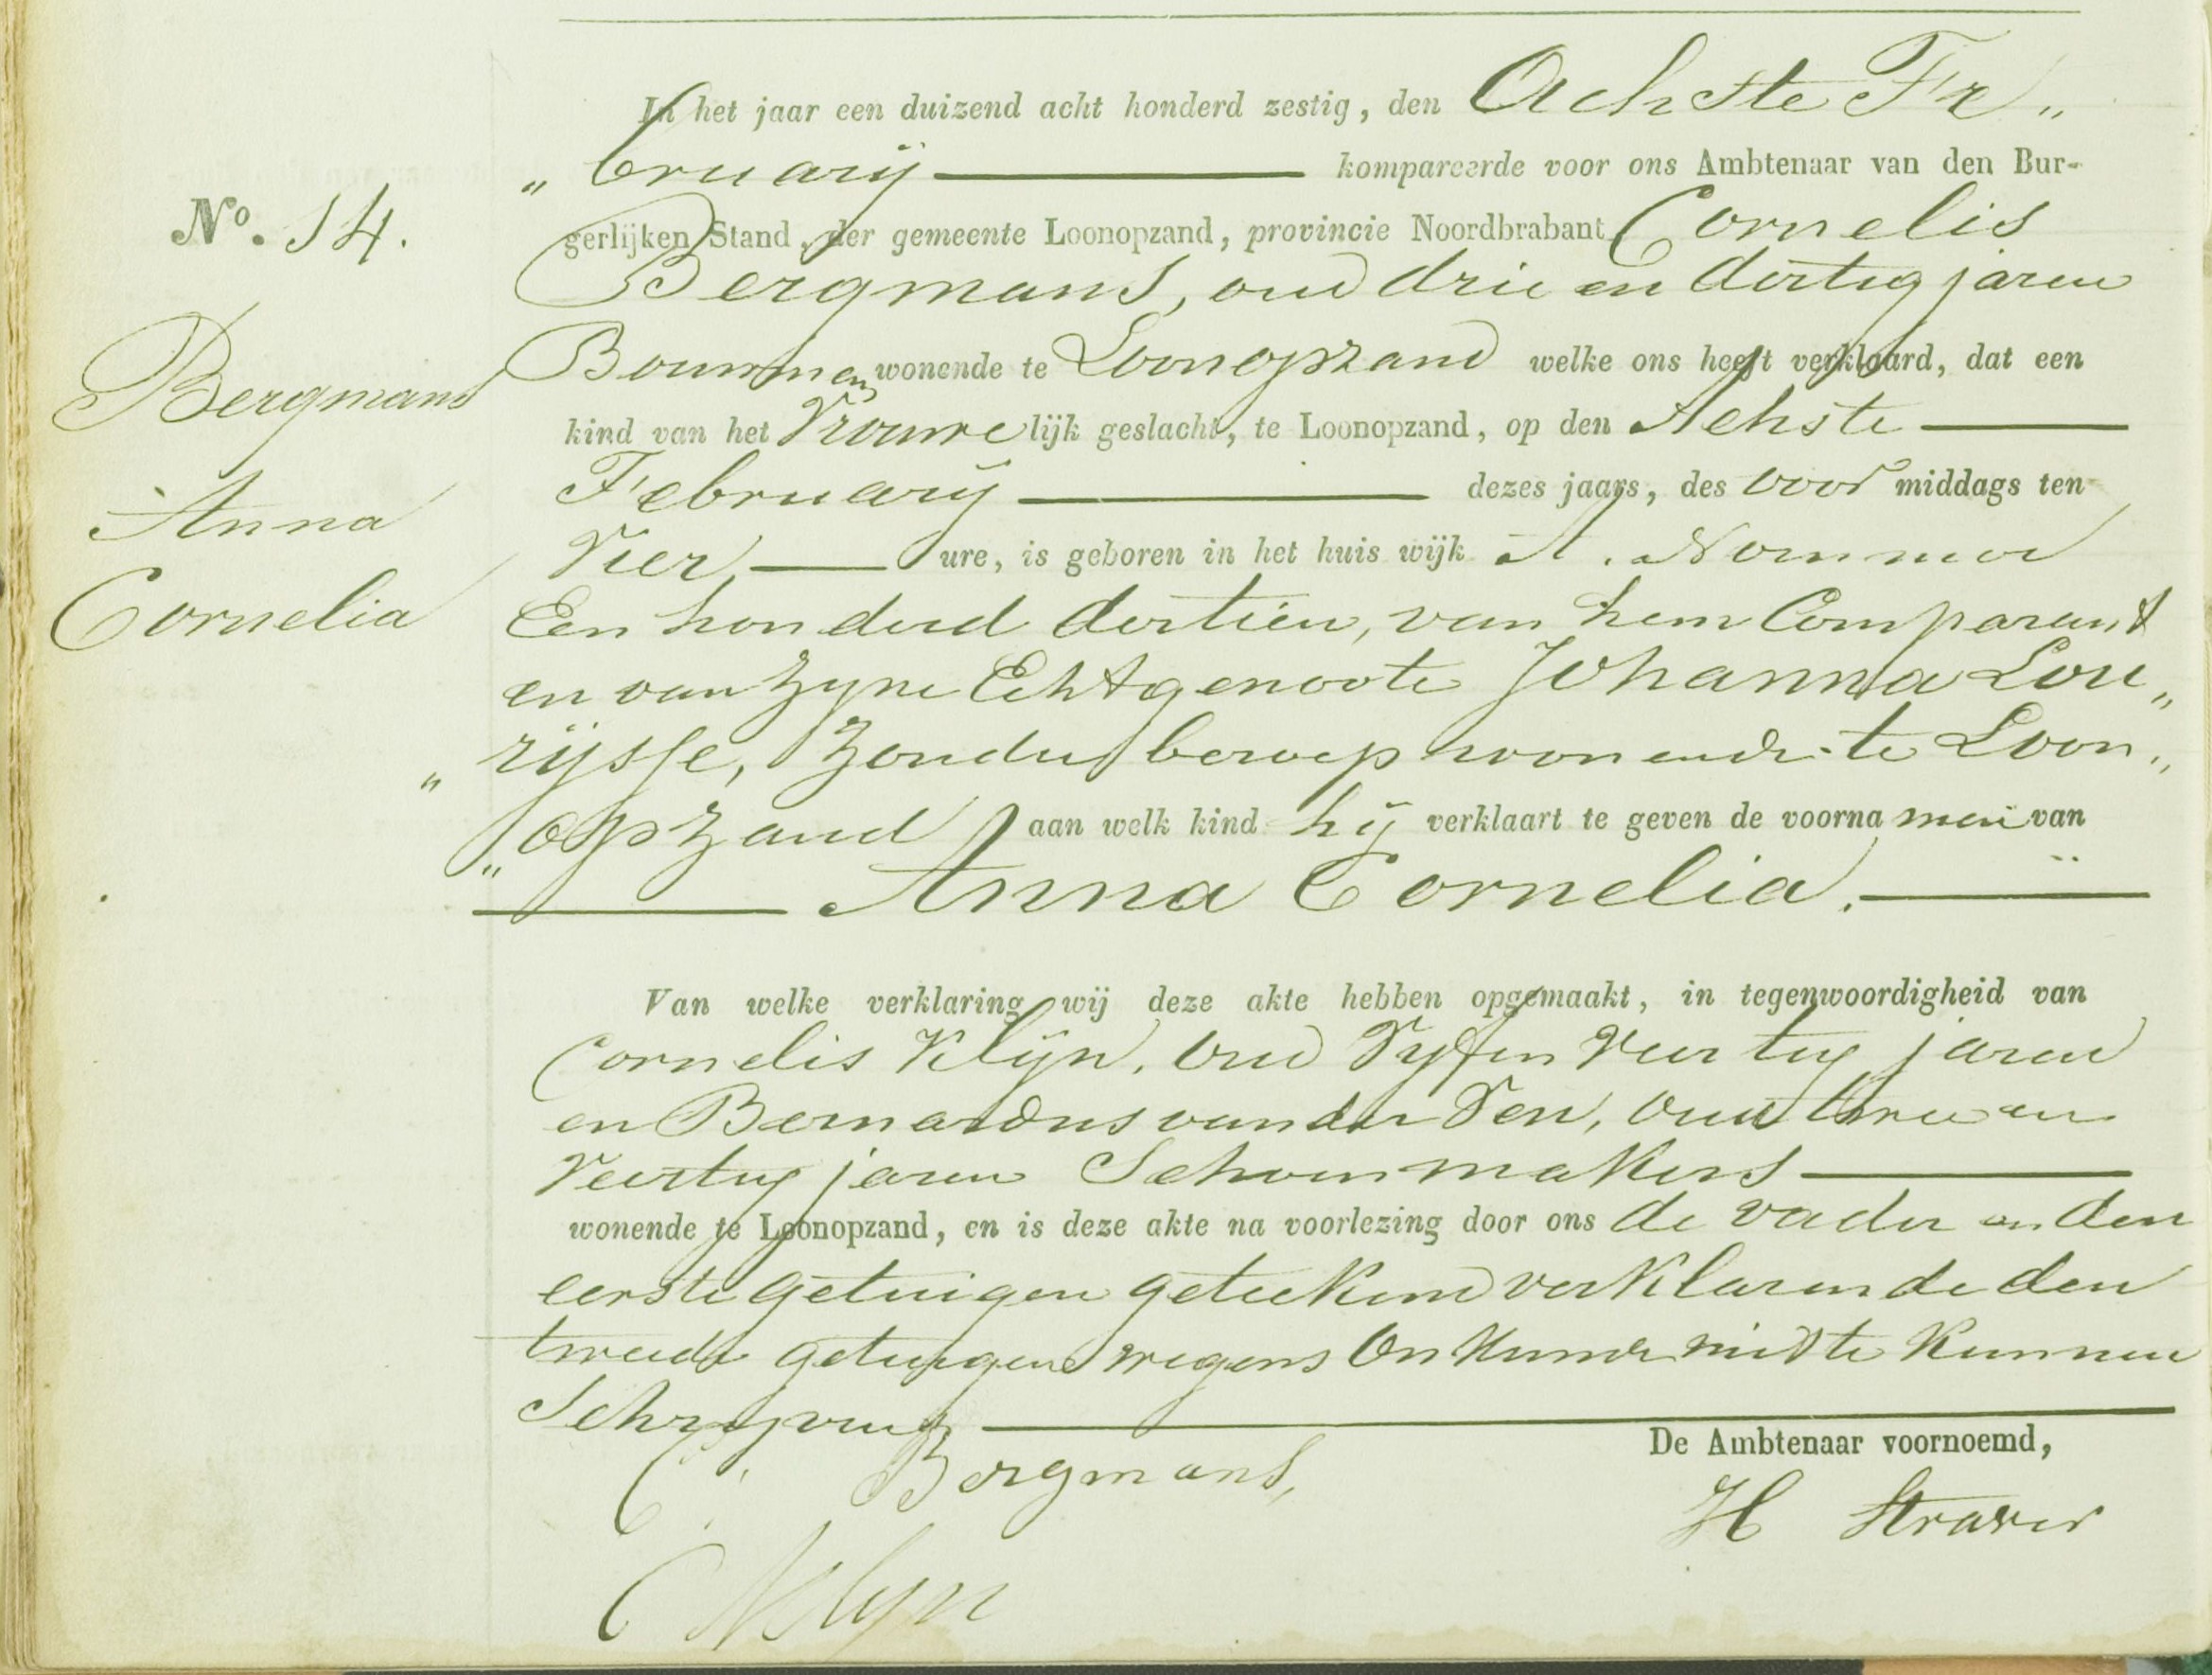 In het jaar een duizend acht honderd zestig, den Achste Fe„
„bruarij kompareerde voor ons Ambtenaar van den Bur-
No. 14.
gerlijken Stand, der gemeente Loonopzand, provincie Noordbrabant Cornelis
Bergmans, oud drie en dertig jaren
Bergmans
Bouwman wonende te Loonopzand welke ons heeft verklaard, dat een
kind van het Vrouwelijk geslacht, te Loonopzand, op den Achste
Anna
February dezes jaars, des voor middags ten
Vier ure, is geboren in het huis wijk A. Nommer
Cornelia
Een honderd dertien, van hem Comparant
en van zyne Echtgenoote Johanna Lou„
„rijsse, Zonder beroep woonende te Loon„
„opzand aan welk kind hij verklaart te geven de voornamen van
Anna Cornelia.
Van welke verklaring wij deze akte hebben opgemaakt, in tegenwoordigheid van
Cornelis Klijn, oud Vyf en Veertig jaren
en Bernardus van der Ven, oud en
Veertig jaren Schoenmakers
wonende te Loonopzand, en is deze akte na voorlezing door ons de vader en den
eerste getuigen geteekend verklarende den
tweede getuigen wegens Onkunde niet te kunnen
Schryven
De Ambtenaar voornoemd,
C. Bergmans,
H Straver
C Klyn